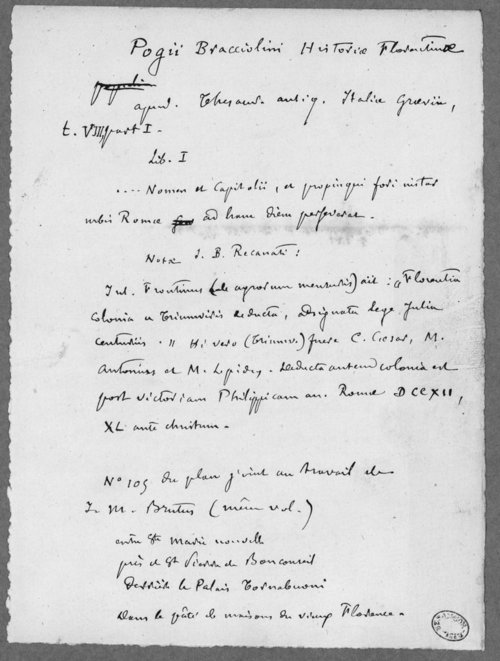 Pogii Bracciolini Historiæ Florentinæ
apud. Thesaur. antiq. Italiæ Grævii,
t. VIII, part I.
Lib. I
.... Nomen et Capitolii, et propinqui fori instar
urbis Romæ ad hanc diem perseverat.
Notæ J. B. Recanati :
Jul. Frontinus (de agrorum mensuris) ait : "Florentia
colonia a Triumviris deducta, assignata lege Julia
centuriis. " Hi vero (Triumv.) fuere C. Cæsar, M.
Antonius et M. Lepidus. Deducta autem colonia est
post victoriam Philippicam an. Romæ DCCXII,
XL ante christum.
N° 105 du plan joint au travail de
J. M. Brutus (même vol.)
entre Ste Marie nouvelle
près de St Pierre de Bonconseil
Derrière le Palais Tornabuoni
Dans le pâté de maisons du vieux Florence.